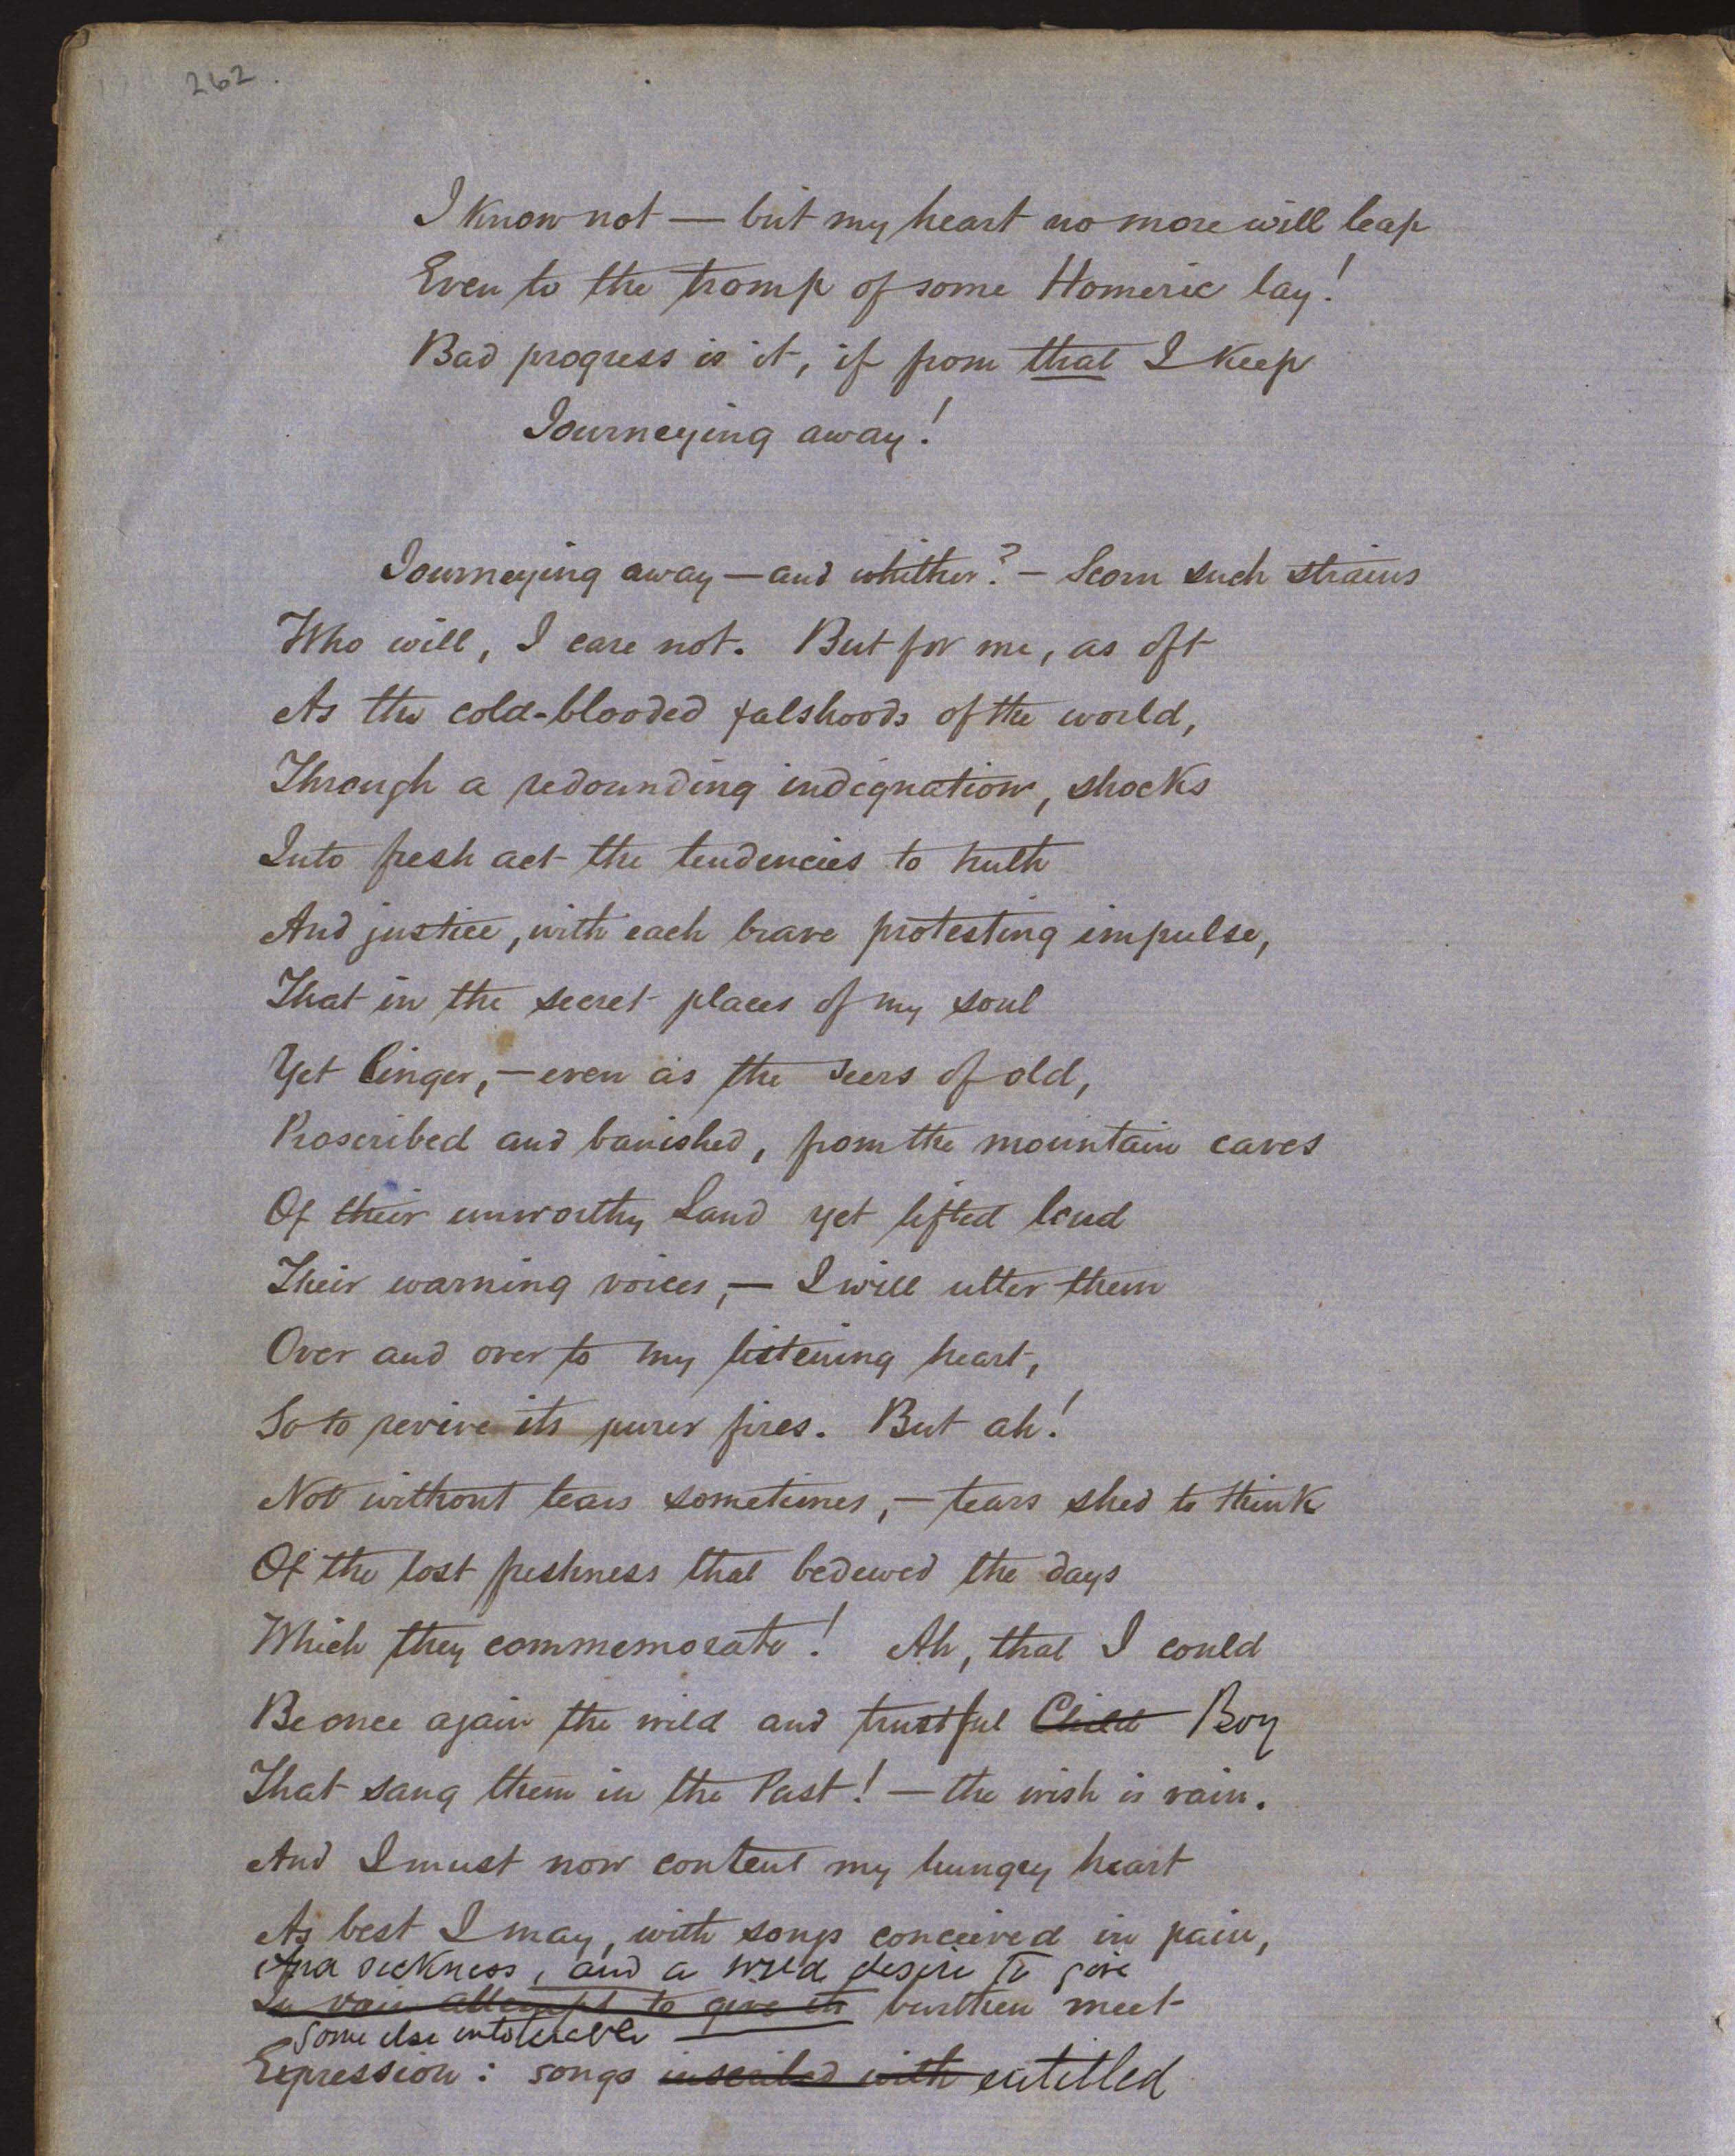 262.
I know not — but my heart no more will leap
Even to the tromp of some Homeric lay!
Bad progress is it, if from that I keep
Journeying away!
Journeying away — and whither? — Scorn such strains
Who will, I care not. But for me, as oft
As the cold-blooded falshoods of the world,
Through a redounding indignation, shocks
Into fresh act the tendencies to truth
And justice, with each brave protesting impulse,
That in the secret places of my soul
Yet linger, — even as the seers of old,
Proscribed and banished, from the mountain caves
Of their unworthy Land yet lifted loud
Their warning voices, — I will utter them
Over and over to my listening heart,
So to revive its purer fires. But ah!
Not without tears sometimes, — tears shed to think
Of the lost freshness that bedewed the days
Which they commemorate! Ah, that I could
Be once again the wild and trustful Child Boy
That sang them in the Past! — the wish is vain.
And I must now content my hungry heart
As best I may, with songs conceived in pain,
And sickness, and a wild desire to give
In vain attempt to give its burthen meet
Some else intolerable
Expression: songs inscribed with entitled